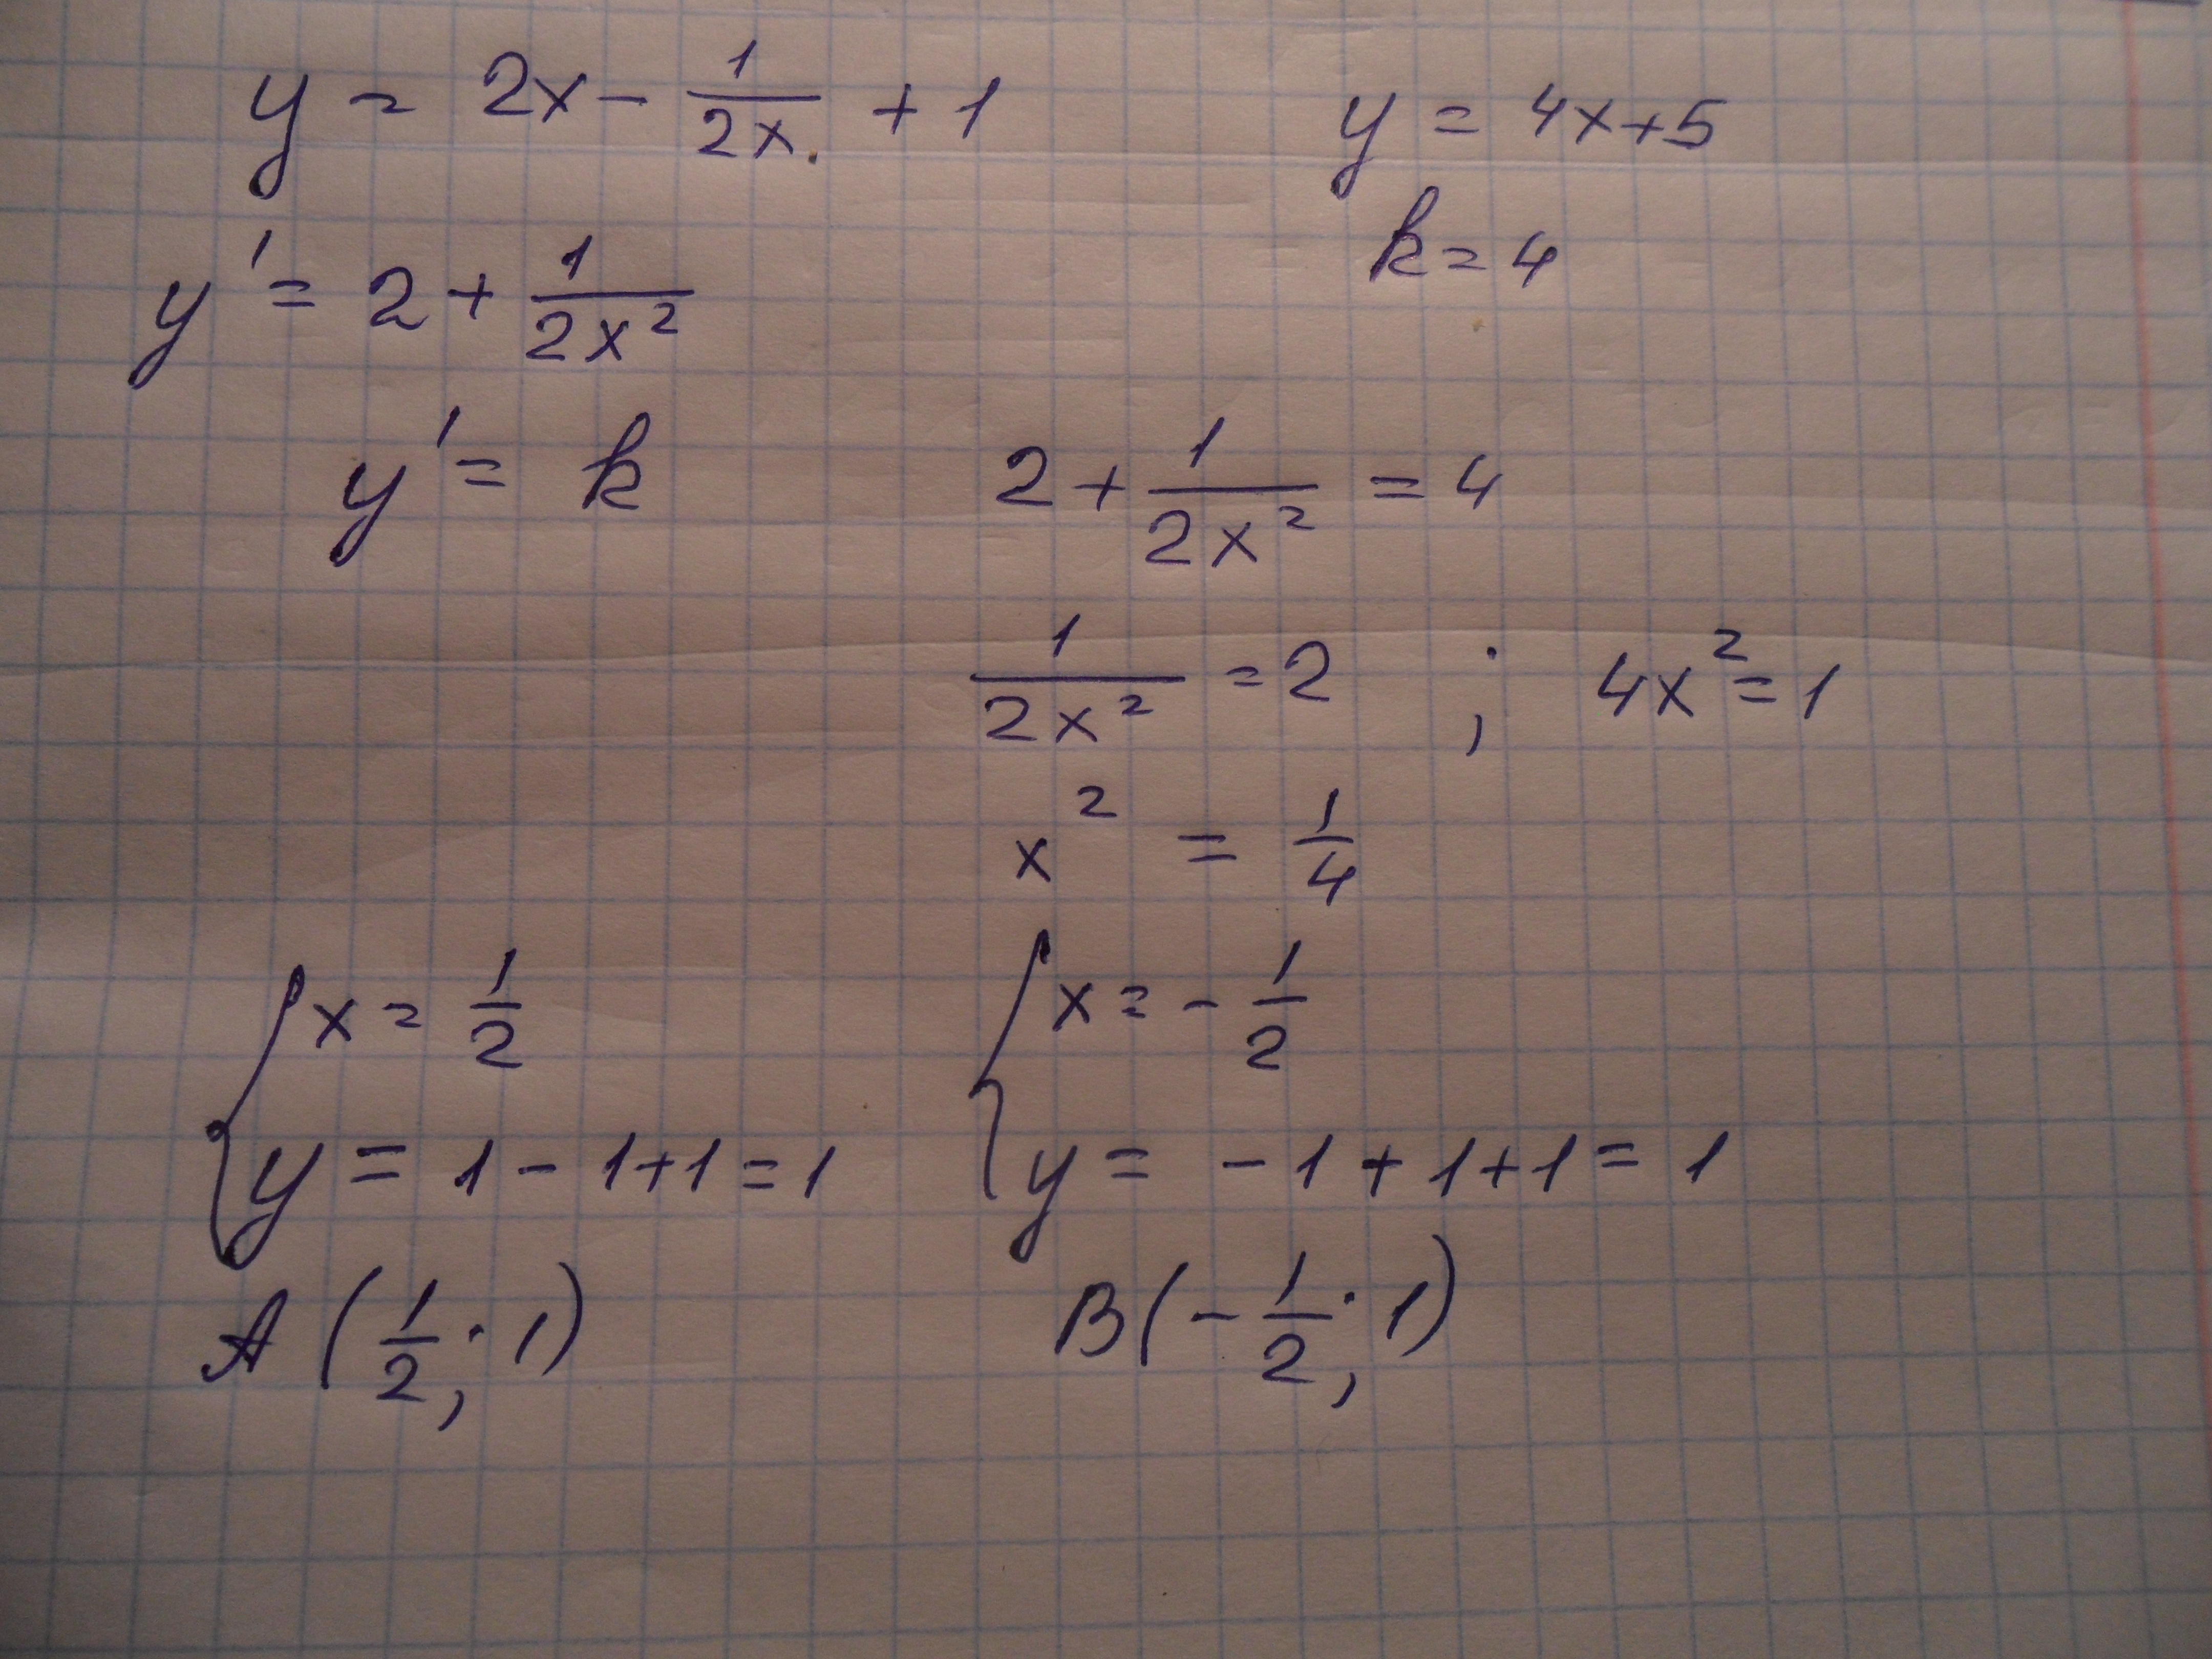 y = 2x - 1/(2x) + 1    y = 4x+5
k = 4
y' = 2 + 1/(2x²)
y' = k    2 + 1/(2x²) = 4
1/(2x²) = 2 ; 4x² = 1
x² = 1/4
{ x = 1/2    { x = - 1/2
y = 1 - 1+1 = 1    y = -1 + 1+1 = 1
A (1/2; 1)    B(- 1/2; 1)